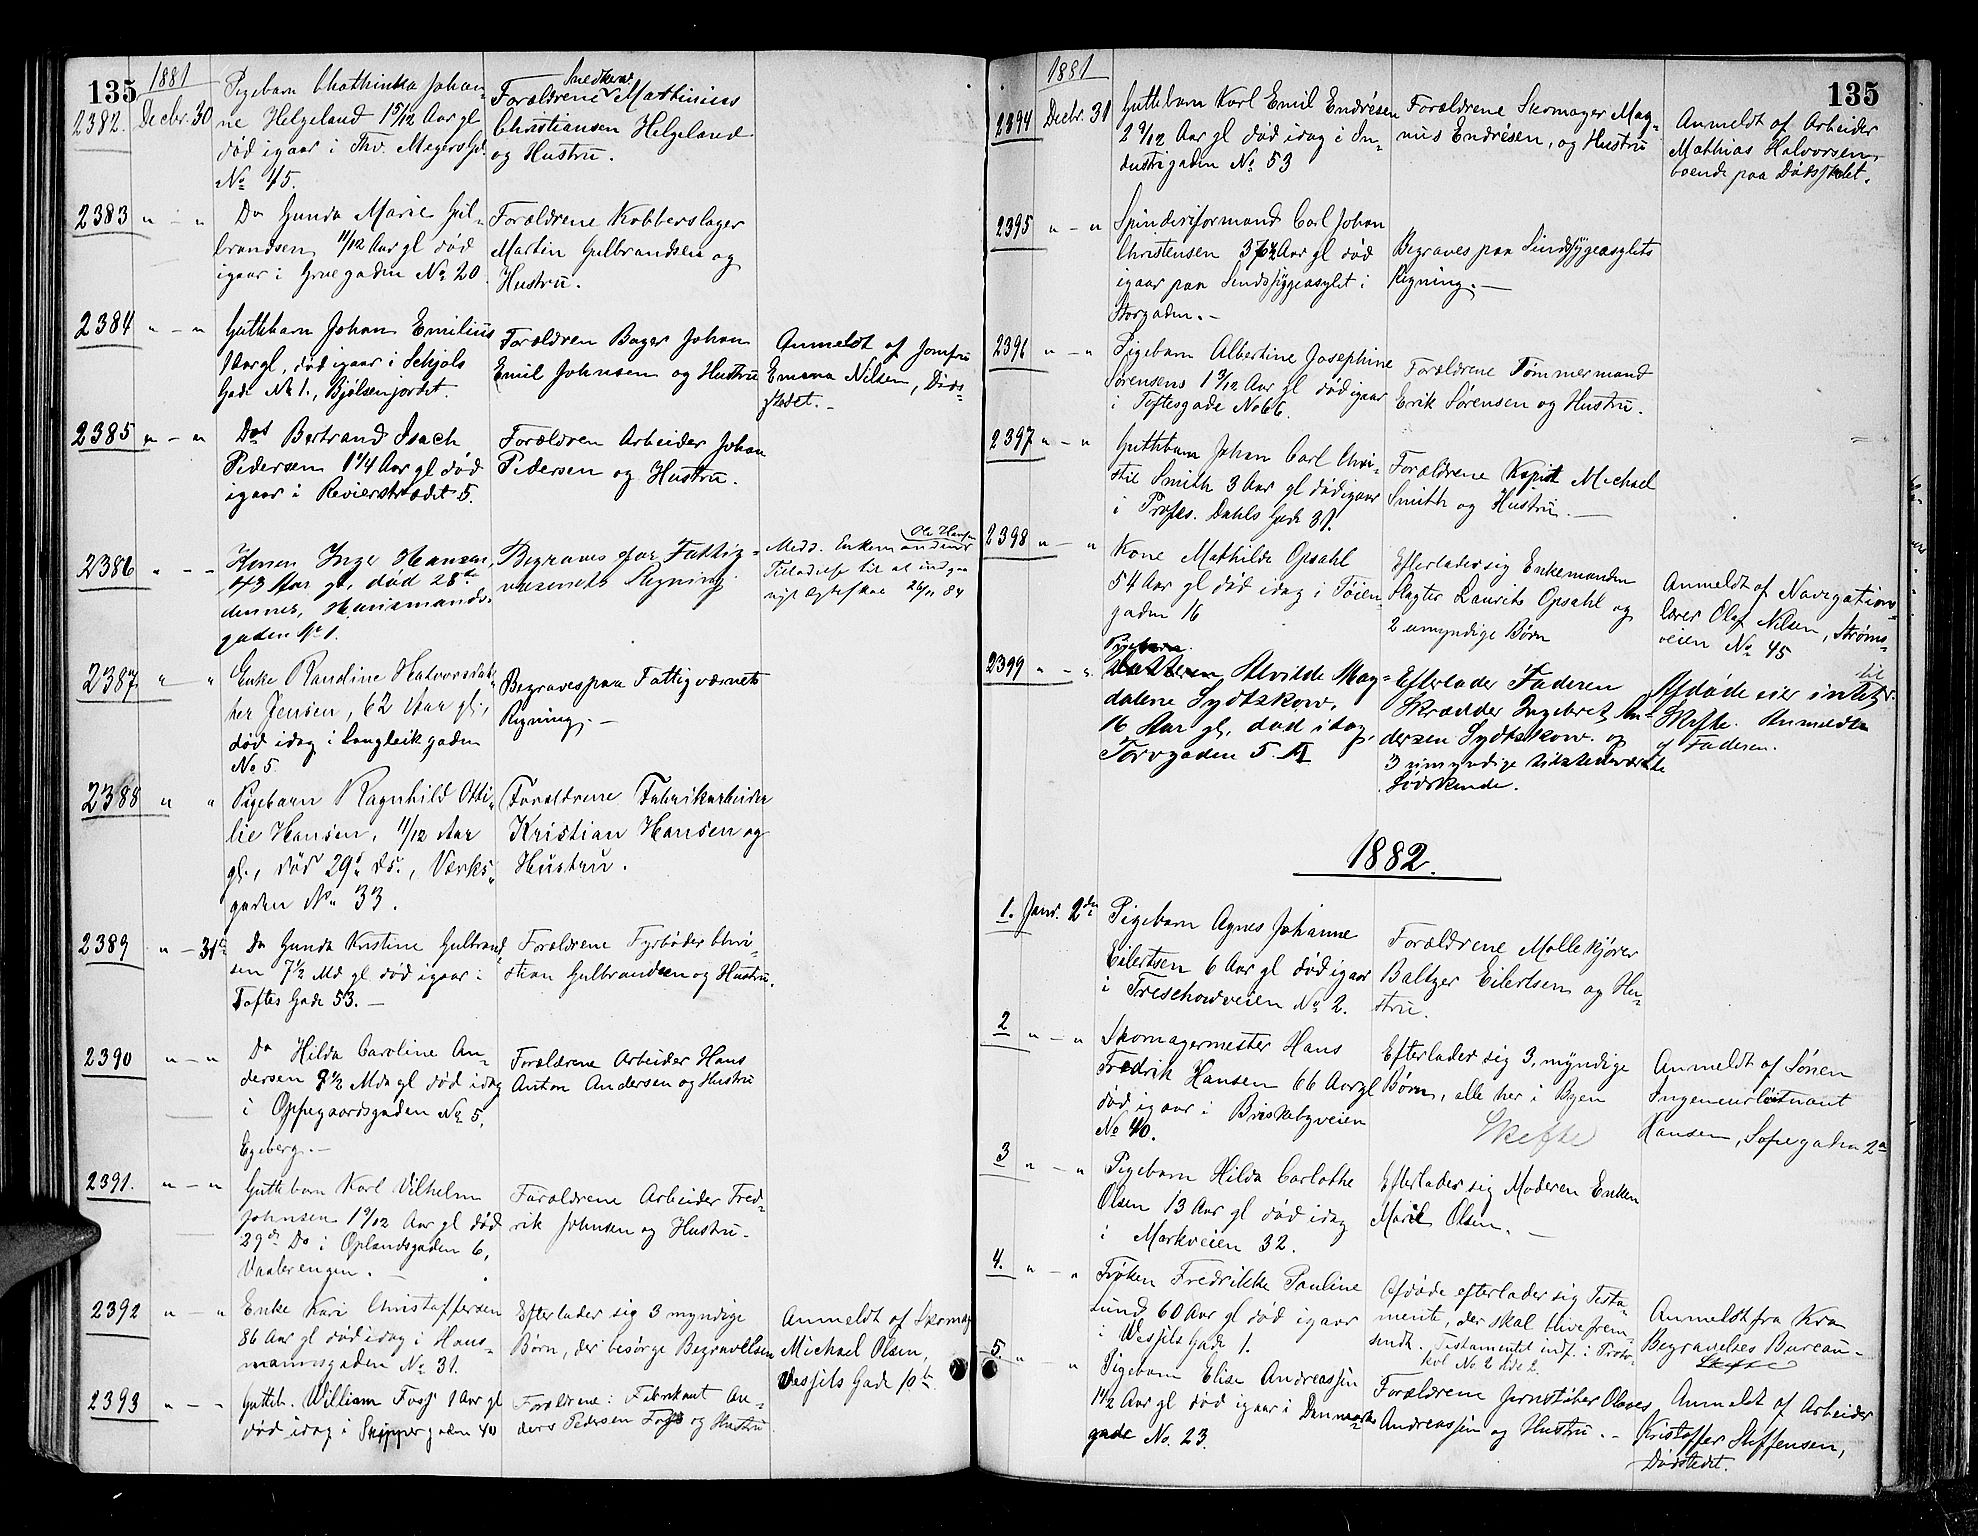 135
1881
2382. Decbr. 30
Pigebarn Chathinka Johan-
ne Helgeland 1 5/12 Aar gl
død igaar i Thv. Meyers Gd.
No 45.
Snedker
Forældrene Mathinius
Christiansen Helgeland
og Hustru.
2383 " - "
Do Gunda Marie Gul-
brandsen 11/12 Aar gl død
igaar i Grue gaden No 20
Forældrene Kobberslager
Martin Gulbrandsen og
Hustru.
2384 " - "
Guttebarn Johan Emilius
1 Aar gl, død igaar i Schjøls
Gade No 1., Bjølsenjordet.
Forældren Bager Johan
Emil Johnsen og Hustru
Anmeldt af Jomfru
Emma Nilsen, Døds-
stedet. -
2385 " - "
Do Bertrand Isach
Pedersen 1 1/4 Aar gl død
igaar i Revierstrædet 5.
Forældren Arbeider Johan
Pedersen og Hustru.
2386 " - "
Konen Inge Hansen,
43 Aar gl, død 28de
dennes, Hausmands-
gaden No 1.
Begraves for Fattig-
væsenets Regning.
Ole Hansen
Medd. Enkemanden
Tilladelse til at indgaa
nyt Ægteskab 26/11 84
2387 " - "
Enke Randine Halvorsdat-
ter Jensen, 62 Aar gl.,
død idag i Langleik gaden
No 5.
Begraves paa Fattigvæsnets
Regning. -
2388 " "
Pigebarn Ragnhild Otti-
lie Hansen, 11/12 Aar
gl., død 29d ds., Værks-
gaden No 33.
Forældrene Fabrikarbeider
Kristian Hansen og
Hustru.
2389 " - 31te
Do Gunda Kristine Gulbrand-
sen 7 1/2 Md gl død igaar i
Toftes Gade 53. -
Forældrene Fyrbøder Chri-
stian Gulbrandsen og Hustru.
2390 " - "
Do Hilda Caroline An-
dersen 8 1/2 Mdr gl død idag
i Opfegaardsgaden No 5,
Egeberg. -
Forældrene Arbeider Hans
Anton Andersen og Hustru
2391. " - "
Guttebarn Karl Vilhelm
Johnsen 1 9/12 Aar gl død
29de Do i Oplandsgaden 6,
Vaalerengen. -
Forældrene Arbeider Fred-
rik Johnsen og Hustru -
2392 " - "
Enke Kari Christoffersen
86 Aar gl død idag i Haus-
mannsgaden No 31.
Efterlader sig 3 myndige
Børn, der besørge Begravelsen
Anmeldt af Skomag
Michael Olsen,
Vessels Gade 10b
2393 " - "
Gutteb. William Foss 1 Aar gl
død idag i Skippergaden 40
Forældrene: Fabrikant An-
ders Pedersen Foss og Hustru
135
1881
2394 Decbr. 31
Guttebarn Karl Emil Endresen
2 9/12 Aar gl død idag i In-
dustrigaden No 53
Forældrene Skomager Mag-
nus Endresen, og Hustru
Anmeldt af Arbeider
Mathias Halvorsen,
boende paa Dødsstedet.
2395 " - "
Spinderiformand Carl Johan
Christensen 37 1/2 Aar gl død
igaar paa Sindssygeasylet i
Storgaden. -
Begraves paa Sindssygeasylets
Regning. -
2396 " - "
Pigebarn Albertine Josephine
Sørensens 1 3/12 Aar gl død igaar
i Toftesgade No 66.
Forældrene Tømmermand
Erik Sørensen og Hustru.
2397 " - "
Guttebarn Johan Carl Chri-
stie Smith 3 Aar gl død igaar
i Profss. Dahls Gade 31.
Forældrene Kapit Michael
Smith og Hustru. -
2398 " - "
Kone Mathilde Opsahl
54 Aar gl død idag i Tøien-
gaden 16
Efterlader sig Enkemanden
Slagter Laurits Opsahl og
2 umyndige Børn
Anmeldt af Navigation-
lærer Olaf Nilsen, Strøms-
veien No 45
2399 " - "
Pigebarn
Datteren Alvilde Mag-
dalene Lydtskow,
16 Aar gl, død idag,
Torvgaden 5. A
Efterlader Faderen
Skrædder Ingebret An-
dersen Lydtskow og
3 umyndige tilstedeværende
Sødskende.
Afdøde eier intet til
Skifte. Anmeldt
af Faderen.
1882.
1. Janr. 2den
Pigebarn Agnes Johanne
Eilertsen 6 Aar gl død igaar
i Treschowveien No 2.
Forældrene Møllekjører
Baltzer Eilertsen og Hu-
stru.
2 " - "
Skomagermester Hans
Fredrik Hansen 66 Aar gl
død igaar i Briskebyveien
No 40.
Efterlader sig 3, myndige
Børn, alle her i Byen
Skifte
Anmeldt af Sønen
Ingeniørløitnant
Hansen, Sofiegaden 2a
3 " - "
Pigebarn Hilda Carlothe
Olsen 13 Aar gl død idag
i Markveien 32.
Efterlader sig Moderen Enken
Marie Olsen. -
4. " - "
Frøken Fredrikke Pauline
Lund 60 Aar gl død igaar
i Vessels Gade 1.
Afdøde efterlader sig Testa-
mente, der skal blive frem-
sendt. Testamentet indf. i Proto-
kol No 2
Anmeldt fra Kra
Begravelses Bureau -
Skifte
5. " "
Pigebarn Elise Andreassen
1 1/2 Aar gl død igaar i Danmarks
gade No. 23.
Forældrene Jernstøber Olaves
Andreassen og Hustru. -
Anmeldt af Arbeider
Kristoffer Steffensen,
Dødstedet.